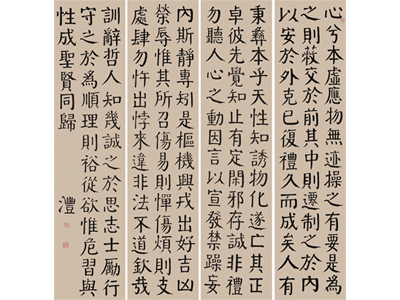 心兮本虛應物無迹操之有要是為
之則蔽交於前其中則遷制之於內
以安於外克己復禮久而成矣人有
秉彝本乎天性知誘物化遂亡其正
卓彼先覺知止有定閑邪存誠非禮
勿聽人心之動因言以宣發禁躁妄
內斯靜專矧是樞機興戎出好吉凶
榮辱惟其所召傷易則憚傷煩則支
處肆勿忤出悖來違非法不道欽哉
訓辭哲人知幾誠之於思志士勵行
守之於為順理則裕從欲惟危習與
性成聖賢同歸
澧